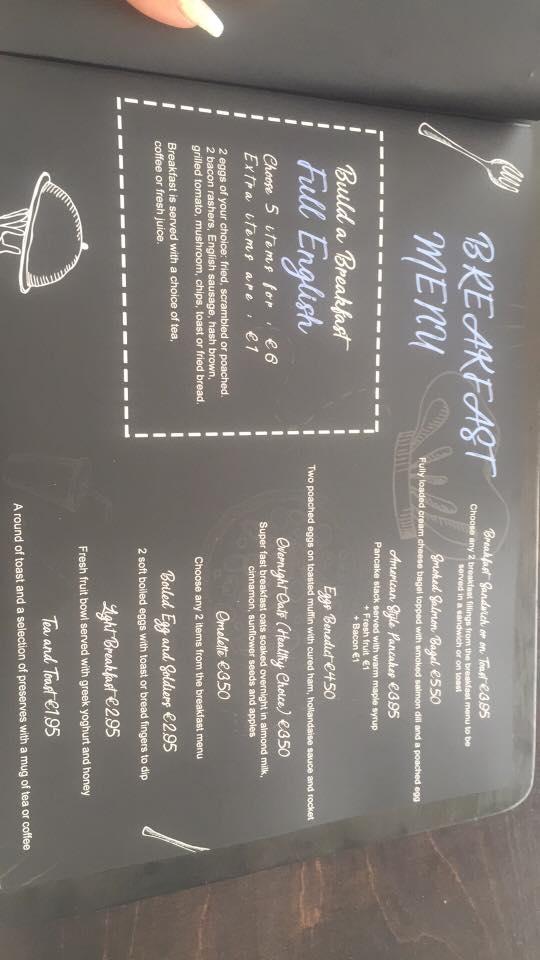 BREAKFAST
MENU
Build a Breakfast
Full English
Choose 5 items for : €6
Extra items are : €1
2 eggs of your choice: fried, scrambled or poached.
2 bacon rashers, English sausage, hash brown,
grilled tomato, mushroom, chips, toast or fried bread.
Breakfast is served with a choice of tea,
coffee or fresh juice.
Breakfast Sandwich or on Toast €3.95
Choose any 2 breakfast fillings from the breakfast menu to be
served in a sandwich or on toast
Smoked Salmon Bagel €5.50
Fully loaded cream cheese bagel topped with smoked salmon dill and a poached egg
American Style Pancakes €3.95
Pancake stack served with warm maple syrup
+ Fresh fruit €1
+ Bacon €1
Eggs Benedict €4.50
Two poached eggs on toasted muffin with cured ham, hollandaise sauce and rocket
Overnight Oats (Healthy Choice) €3.50
Super fast breakfast oats soaked overnight in almond milk,
cinnamon, sunflower seeds and apples
Omelette €3.50
Choose any 2 items from the breakfast menu
Boiled Egg and Soldiers €2.95
2 soft boiled eggs with toast or bread fingers to dip
Light Breakfast €2.95
Fresh fruit bowl served with greek yoghurt and honey
Tea and Toast €1.95
A round of toast and a selection of preserves with a mug of tea or coffee